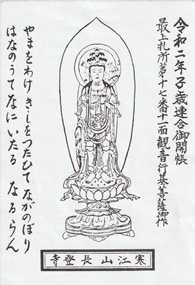 令和二年子歳連合御開帳
最上札所第十七番十一面観音行基菩薩御作
やまをわけ きしをつたひて ながのぼり
はなのうてなに いたる なるらん
寒江山長登寺